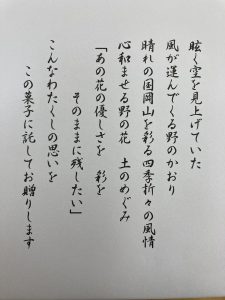 眩く空を見上げていた
風が運んでくる野のかおり
晴れの国岡山を彩る四季折々の風情
心和ませる野の花　土のめぐみ
「あの花の優しさを　彩を
そのままに残したい」
こんなわたくしの思いを
この菓子に託してお贈りします